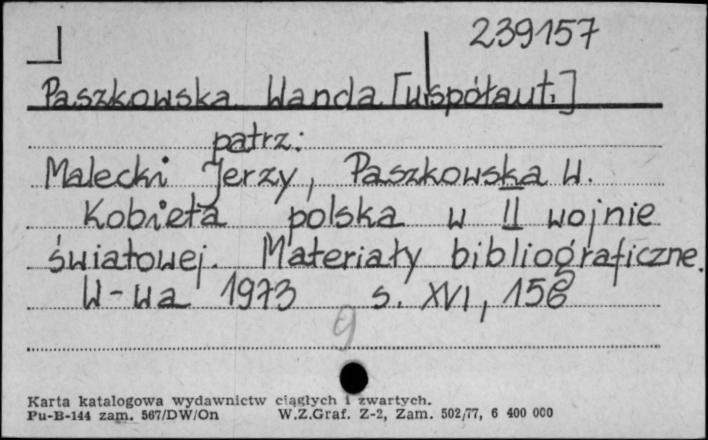 239157
Paszkowska Wanda [współaut.]
patrz:
Malecki Jerzy, Paszkowska W.
Kobieta polska w II wojnie
światowej. Materiały bibliograficzne.
W-wa 1973 s. XVI, 156
g
Karta katalogowa wydawnictw ciągłych i zwartych.
Pu-B-144 zam. 567/DW/On W.Z.Graf. Z-2, Zam. 502/77, 6 400 000